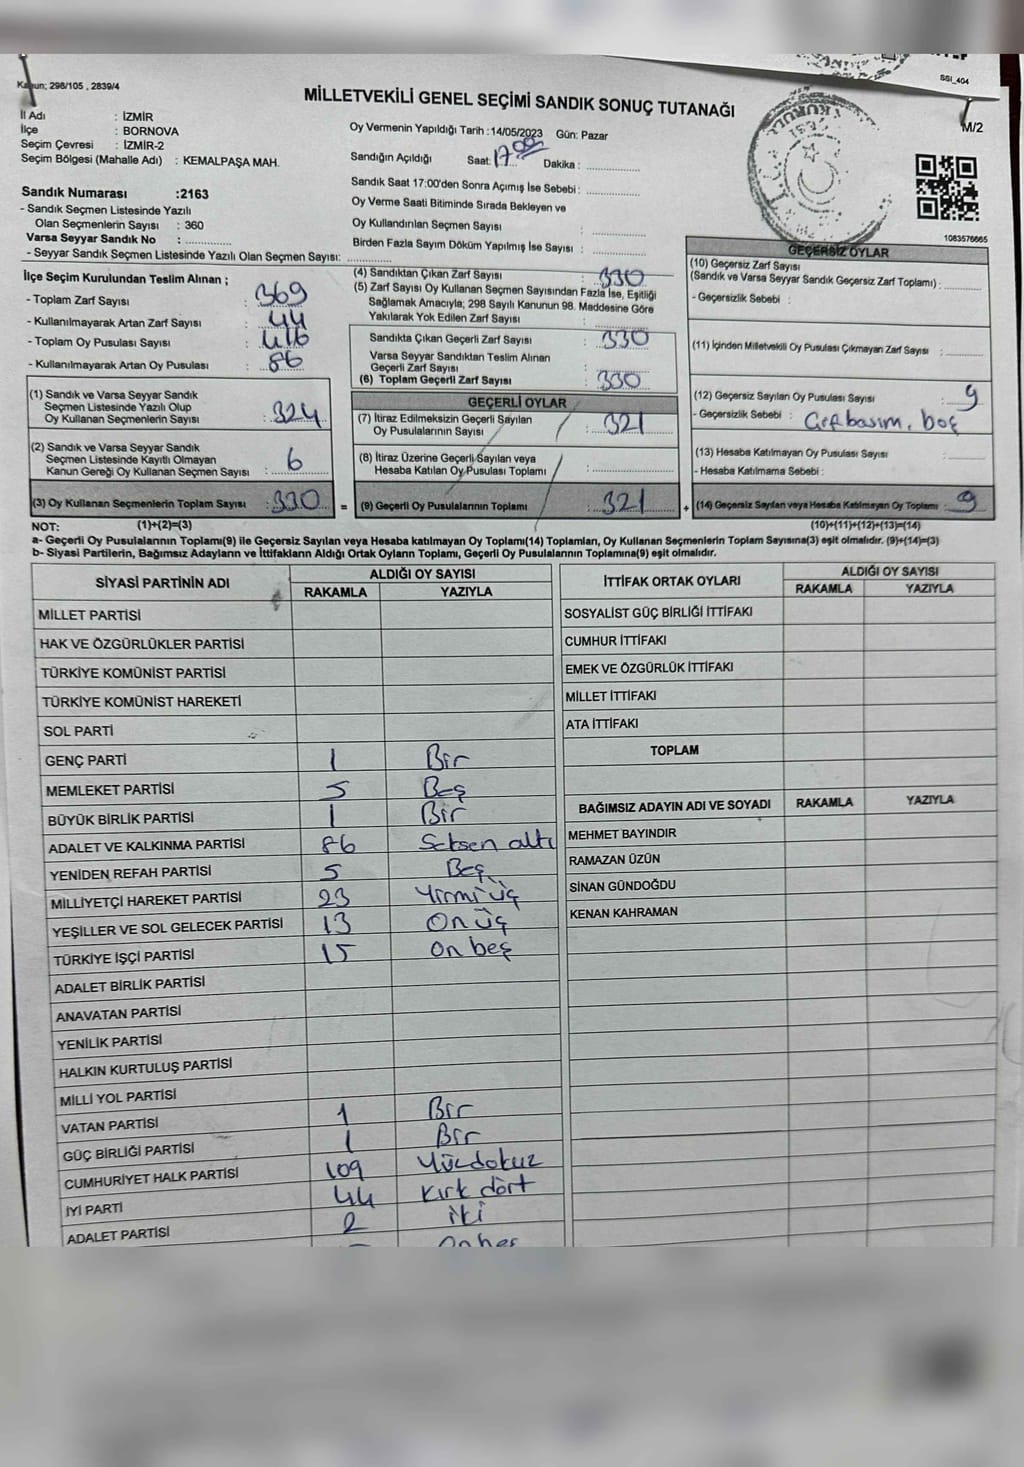 Kanun; 298/105 , 2839/4
SSI_404
MİLLETVEKİLİ GENEL SEÇİMİ SANDIK SONUÇ TUTANAĞI
M/2
İl Adı : İZMİR
İlçe : BORNOVA
Seçim Çevresi : İZMİR-2
Seçim Bölgesi (Mahalle Adı) : KEMALPAŞA MAH.
Oy Vermenin Yapıldığı Tarih :14/05/2023 Gün: Pazar
Sandığın Açıldığı Saat: 17.00 Dakika :
Sandık Saat 17:00'den Sonra Açımış İse Sebebi :
Oy Verme Saati Bitiminde Sırada Bekleyen ve
Oy Kullandırılan Seçmen Sayısı :
Birden Fazla Sayım Döküm Yapılmış İse Sayısı :
Sandık Numarası :2163
- Sandık Seçmen Listesinde Yazılı
Olan Seçmenlerin Sayısı : 360
Varsa Seyyar Sandık No :
- Seyyar Sandık Seçmen Listesinde Yazılı Olan Seçmen Sayısı:
1083576665
İlçe Seçim Kurulundan Teslim Alınan ;
- Toplam Zarf Sayısı : 369
- Kullanılmayarak Artan Zarf Sayısı : 44
- Toplam Oy Pusulası Sayısı : 416
- Kullanılmayarak Artan Oy Pusulası : 86
(1) Sandık ve Varsa Seyyar Sandık
Seçmen Listesinde Yazılı Olup
Oy Kullanan Seçmenlerin Sayısı : 324
(2) Sandık ve Varsa Seyyar Sandık
Seçmen Listesinde Kayıtlı Olmayan
Kanun Gereği Oy Kullanan Seçmen Sayısı : 6
(3) Oy Kullanan Seçmenlerin Toplam Sayısı : 330 =
(4) Sandıktan Çıkan Zarf Sayısı : 330
(5) Zarf Sayısı Oy Kullanan Seçmen Sayısından Fazla İse, Eşitliği
Sağlamak Amacıyla; 298 Sayılı Kanunun 98. Maddesine Göre
Yakılarak Yok Edilen Zarf Sayısı :
Sandıkta Çıkan Geçerli Zarf Sayısı : 330
Varsa Seyyar Sandıktan Teslim Alınan
Geçerli Zarf Sayısı :
(6) Toplam Geçerli Zarf Sayısı : 330
GEÇERLİ OYLAR
(7) İtiraz Edilmeksizin Geçerli Sayılan
Oy Pusulalarının Sayısı : 321
(8) İtiraz Üzerine Geçerli Sayılan veya
Hesaba Katılan Oy Pusulası Toplamı :
(9) Geçerli Oy Pusulalarının Toplamı : 321 +
GEÇERSİZ OYLAR
(10) Geçersiz Zarf Sayısı
(Sandık ve Varsa Seyyar Sandık Geçersiz Zarf Toplamı) :
- Geçersizlik Sebebi :
(11) İçinden Milletvekili Oy Pusulası Çıkmayan Zarf Sayısı :
(12) Geçersiz Sayılan Oy Pusulası Sayısı : 9
- Geçersizlik Sebebi : Çift basım, boş
(13) Hesaba Katılmayan Oy Pusulası Sayısı :
- Hesaba Katılmama Sebebi :
(14) Geçersiz Sayılan veya Hesaba Katılmayan Oy Toplamı : 9
NOT: (1)+(2)=(3) (10)+(11)+(12)+(13)=(14)
a- Geçerli Oy Pusulalarının Toplamı(9) ile Geçersiz Sayılan veya Hesaba katılmayan Oy Toplamı(14) Toplamları, Oy Kullanan Seçmenlerin Toplam Sayısına(3) eşit olmalıdır. (9)+(14)=(3)
b- Siyasi Partilerin, Bağımsız Adayların ve İttifakların Aldığı Ortak Oyların Toplamı, Geçerli Oy Pusulalarının Toplamına(9) eşit olmalıdır.
SİYASİ PARTİNİN ADI ALDIĞI OY SAYISI
RAKAMLA YAZIYLA
MİLLET PARTİSİ
HAK VE ÖZGÜRLÜKLER PARTİSİ
TÜRKİYE KOMÜNİST PARTİSİ
TÜRKİYE KOMÜNİST HAREKETİ
SOL PARTİ
GENÇ PARTİ 1 Bir
MEMLEKET PARTİSİ 5 Beş
BÜYÜK BİRLİK PARTİSİ 1 Bir
ADALET VE KALKINMA PARTİSİ 86 Seksen altı
YENİDEN REFAH PARTİSİ 5 Beş
MİLLİYETÇİ HAREKET PARTİSİ 23 Yirmi üç
YEŞİLLER VE SOL GELECEK PARTİSİ 13 On üç
TÜRKİYE İŞÇİ PARTİSİ 15 on beş
ADALET BİRLİK PARTİSİ
ANAVATAN PARTİSİ
YENİLİK PARTİSİ
HALKIN KURTULUŞ PARTİSİ
MİLLİ YOL PARTİSİ
VATAN PARTİSİ 1 Bir
GÜÇ BİRLİĞİ PARTİSİ 1 Bir
CUMHURİYET HALK PARTİSİ 109 Yüzdokuz
İYİ PARTİ 44 Kırk dört
ADALET PARTİSİ 2 iki
İTTİFAK ORTAK OYLARI ALDIĞI OY SAYISI
RAKAMLA YAZIYLA
SOSYALİST GÜÇ BİRLİĞİ İTTİFAKI
CUMHUR İTTİFAKI
EMEK VE ÖZGÜRLÜK İTTİFAKI
MİLLET İTTİFAKI
ATA İTTİFAKI
TOPLAM
BAĞIMSIZ ADAYIN ADI VE SOYADI RAKAMLA YAZIYLA
MEHMET BAYINDIR
RAMAZAN ÜZÜN
SİNAN GÜNDOĞDU
KENAN KAHRAMAN